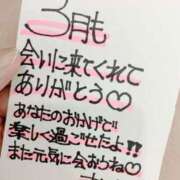 3月も
会いに来てくれて
ありがとう♡
あなたのおかげで
楽しく過ごせたよ!!
また元気に会おうね♡